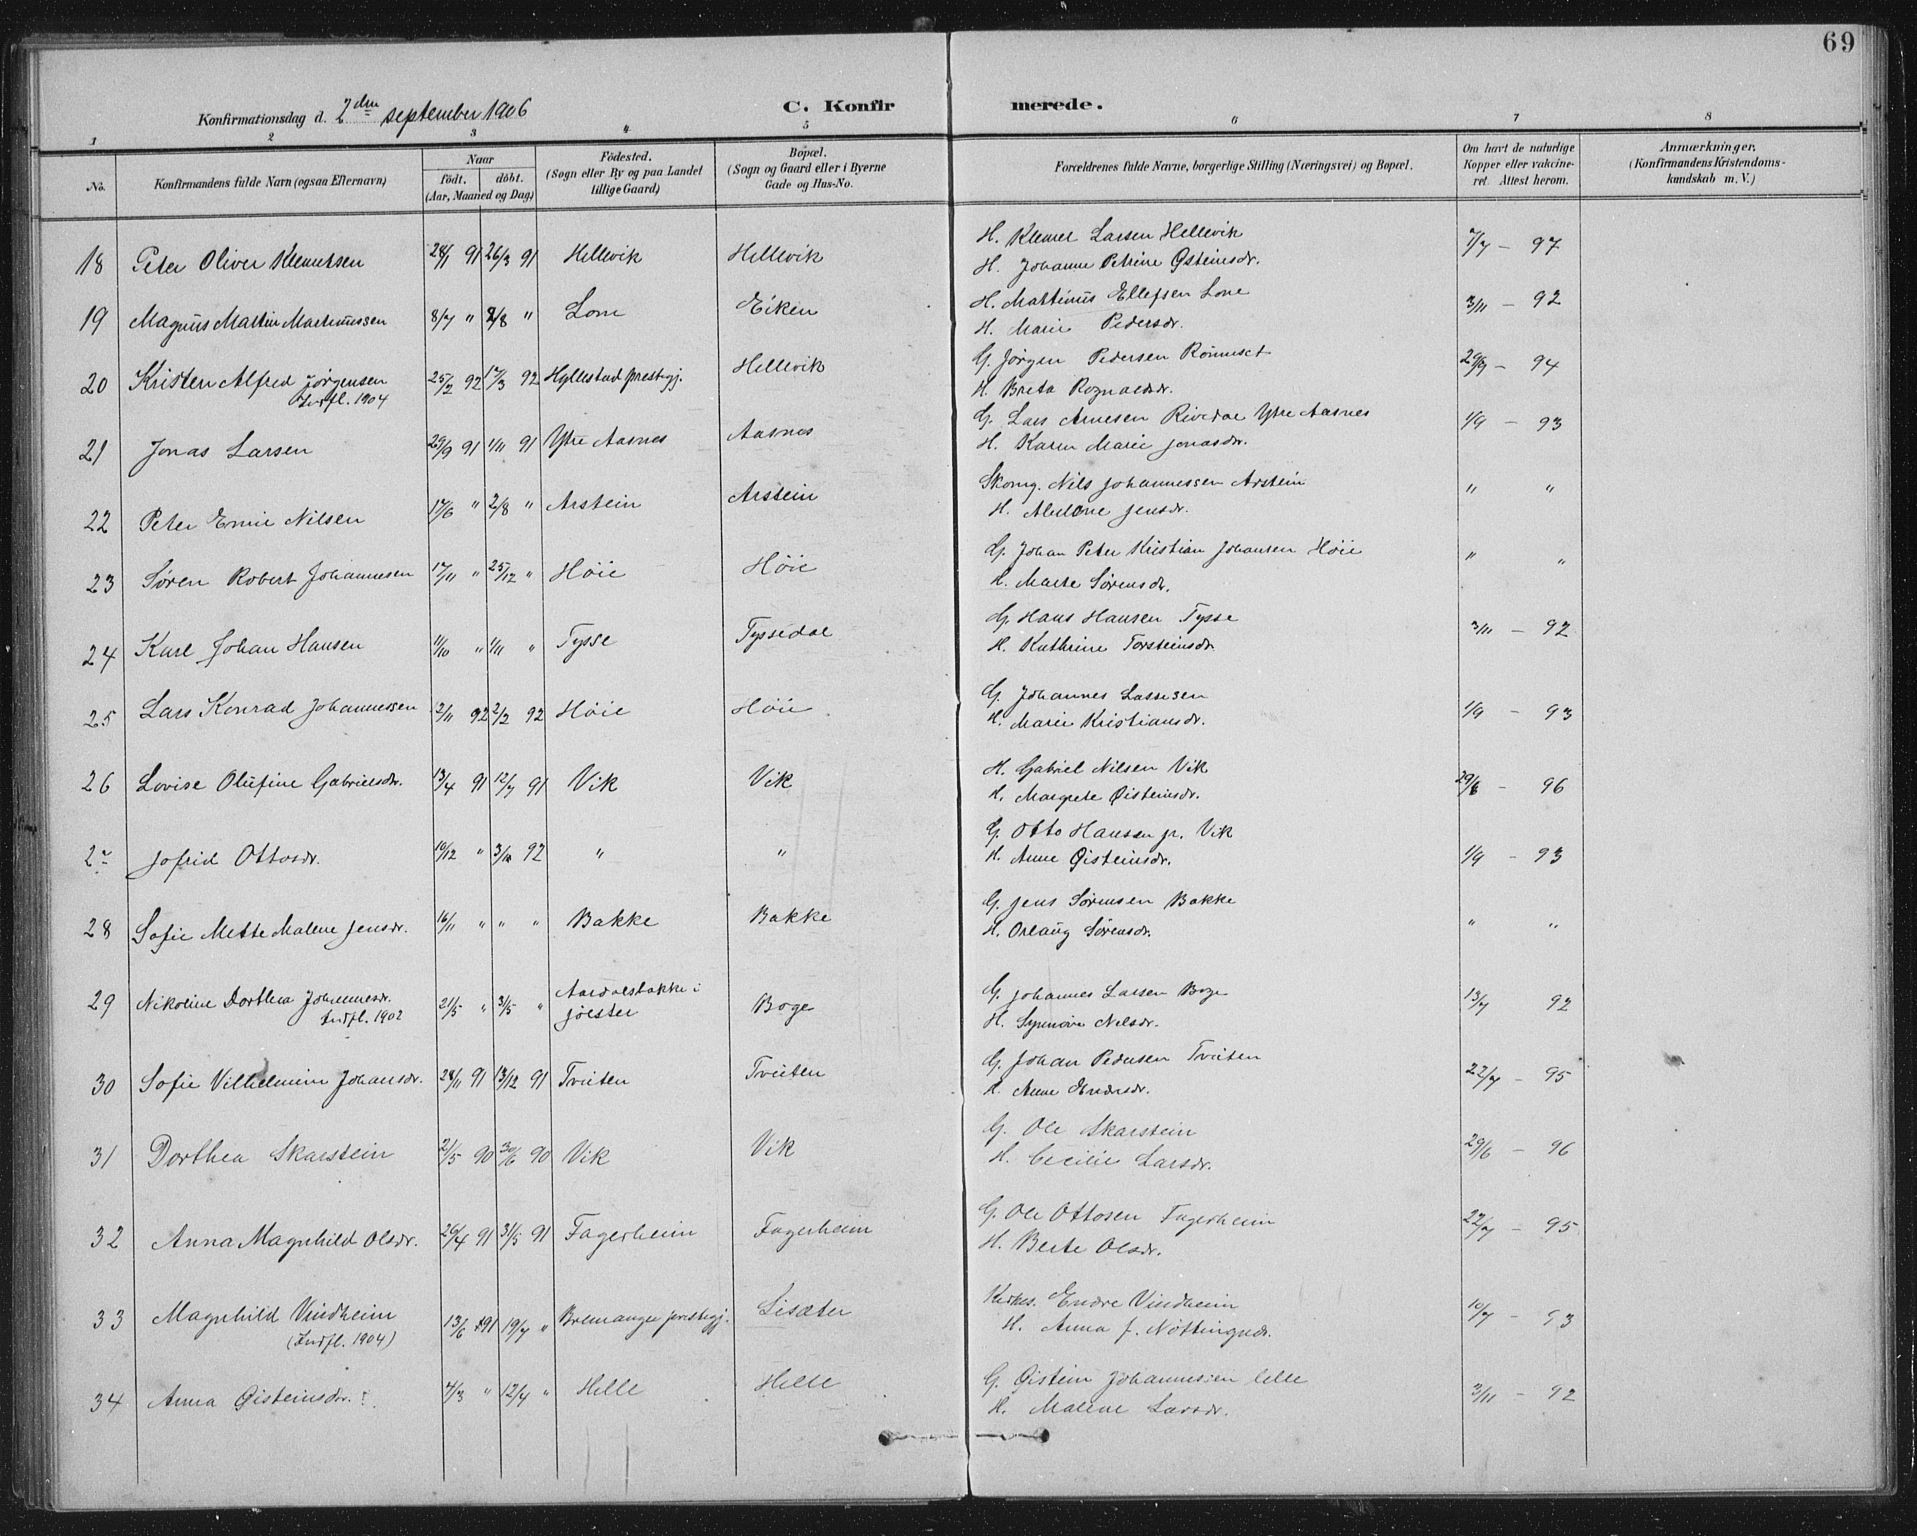 69
Konfirmationsdag d. 2den september 1906 C. Konfirmerede.
1 2 3 4 5 6 7 8
No. Konfirmandens fulde Navn (ogsaa Efternavn) Naar født. døbt. (Aar, Maaned og Dag) Fødested. (Sogn eller By og paa Landet tillige Gaard) Bopæl. (Sogn og Gaard eller i Byerne Gade og Hus-No. Forældrenes fulde Navne, borgerlige Stilling (Næringsvei) og Bopæl. Om havt de naturlige Kopper eller vakcineret. Attest herom. Anmærkninger. (Konfirmandens Kristendomskundskab m. V.)
18 Peter Oliver Klemetsen 24/1 91 26/3 91 Hellevik Hellevik H. Klemet Larsen Hellevik 7/7 — 97
H. Johanne Petrine Østeinsdr.
19 Magnus Martin Martinussen 8/7 " 2/8 " Lone Eiken H. Martinus Ellefsen Lone 3/11 — 92
H. Marie Pedersdr.
20 Kristen Alfred Jørgensen 25/2 92 17/3 92 Hyllestad prestegj. Hellevik G. Jørgen Pedersen Rønneset 29/9 — 94
Indfl. 1904 H. Breta Rognaldsdr.
21 Jonas Larsen 29/9 91 1/11 91 Ytre Aasnes Aasnes G. Lars Arnesen Rivedal Ytre Aasnes 1/9 — 93
H. Karen Marie Jonasdr.
22 Peter Emil Nilsen 17/6 " 2/8 " Arstein Arstein Skomg. Nils Johannessen Arstein " "
H. Abelone Jensdr.
23 Søren Robert Johannesen 17/11 " 25/12 " Høie Høie G. Johan Peter Kristian Johansen Høie " "
H. Marte Sørensdr.
24 Karl Johan Hansen 11/10 " 1/11 " Tysse Tyssedal G. Hans Hansen Tysse 3/11 — 92
H. Kathrine Torsteinsdr.
25 Lars Konrad Johannessen 12/11 92 2/2 92 Høie Høie G. Johannes Lassesen 1/9 — 93
H. Marie Kristiansdr.
26 Lovise Olufine Gabrielsdr. 13/4 91 12/7 91 Vik Vik H. Gabriel Nilsen Vik 29/6 — 96
H. Margrete Øisteinsdr.
27 Jofrid Ottosdr. 10/12 " 3/10 92 " " G. Otto Hansen jr. Vik 1/9 — 93
H. Anne Øisteinsdr.
28 Sofie Mette Malene Jensdr. 16/11 " " " Bakke Bakke G. Jens Sørensen Bakke " "
H. Orlaug Sørensdr.
29 Nikoline Dorthea Johannesdr. 21/5 " 31/5 " Aardalsbakke i Jølster Boge G. Johannes Larsen Boge 13/7 92
Indfl. 1902 H. Synnøve Nilsdr.
30 Sofie Vilhelmine Johansdr. 28/11 91 13/12 91 Tviiten Tviiten G. Johan Pedersen Tviiten 22/7 — 95
H. Anne Endresdr.
31 Dorthea Skarstein 21/5 90 30/6 90 Vik Vik G. Ole Skarstein 29/6 — 96
H. Cecilie Larsdr.
32 Anna Magnhild Olsdr. 26/4 91 31/5 91 Fagerheim Fagerheim G. Ole Ottosen Fagerheim 22/7 — 95
H. Berte Olsdr.
33 Magnhild Vindheim 13/6 91 19/7 " Bremanger prestegj. Lisæter Kirkes. Endre Vindheim 10/7 — 93
(Indfl. 1904) H. Anna J. Nøttingnesdr.
34 Anna Øisteinsdr. 7/3 " 12/4 " Helle Helle G. Øistein Johannessen Helle 3/11 — 92
H. Malene Larsdr.